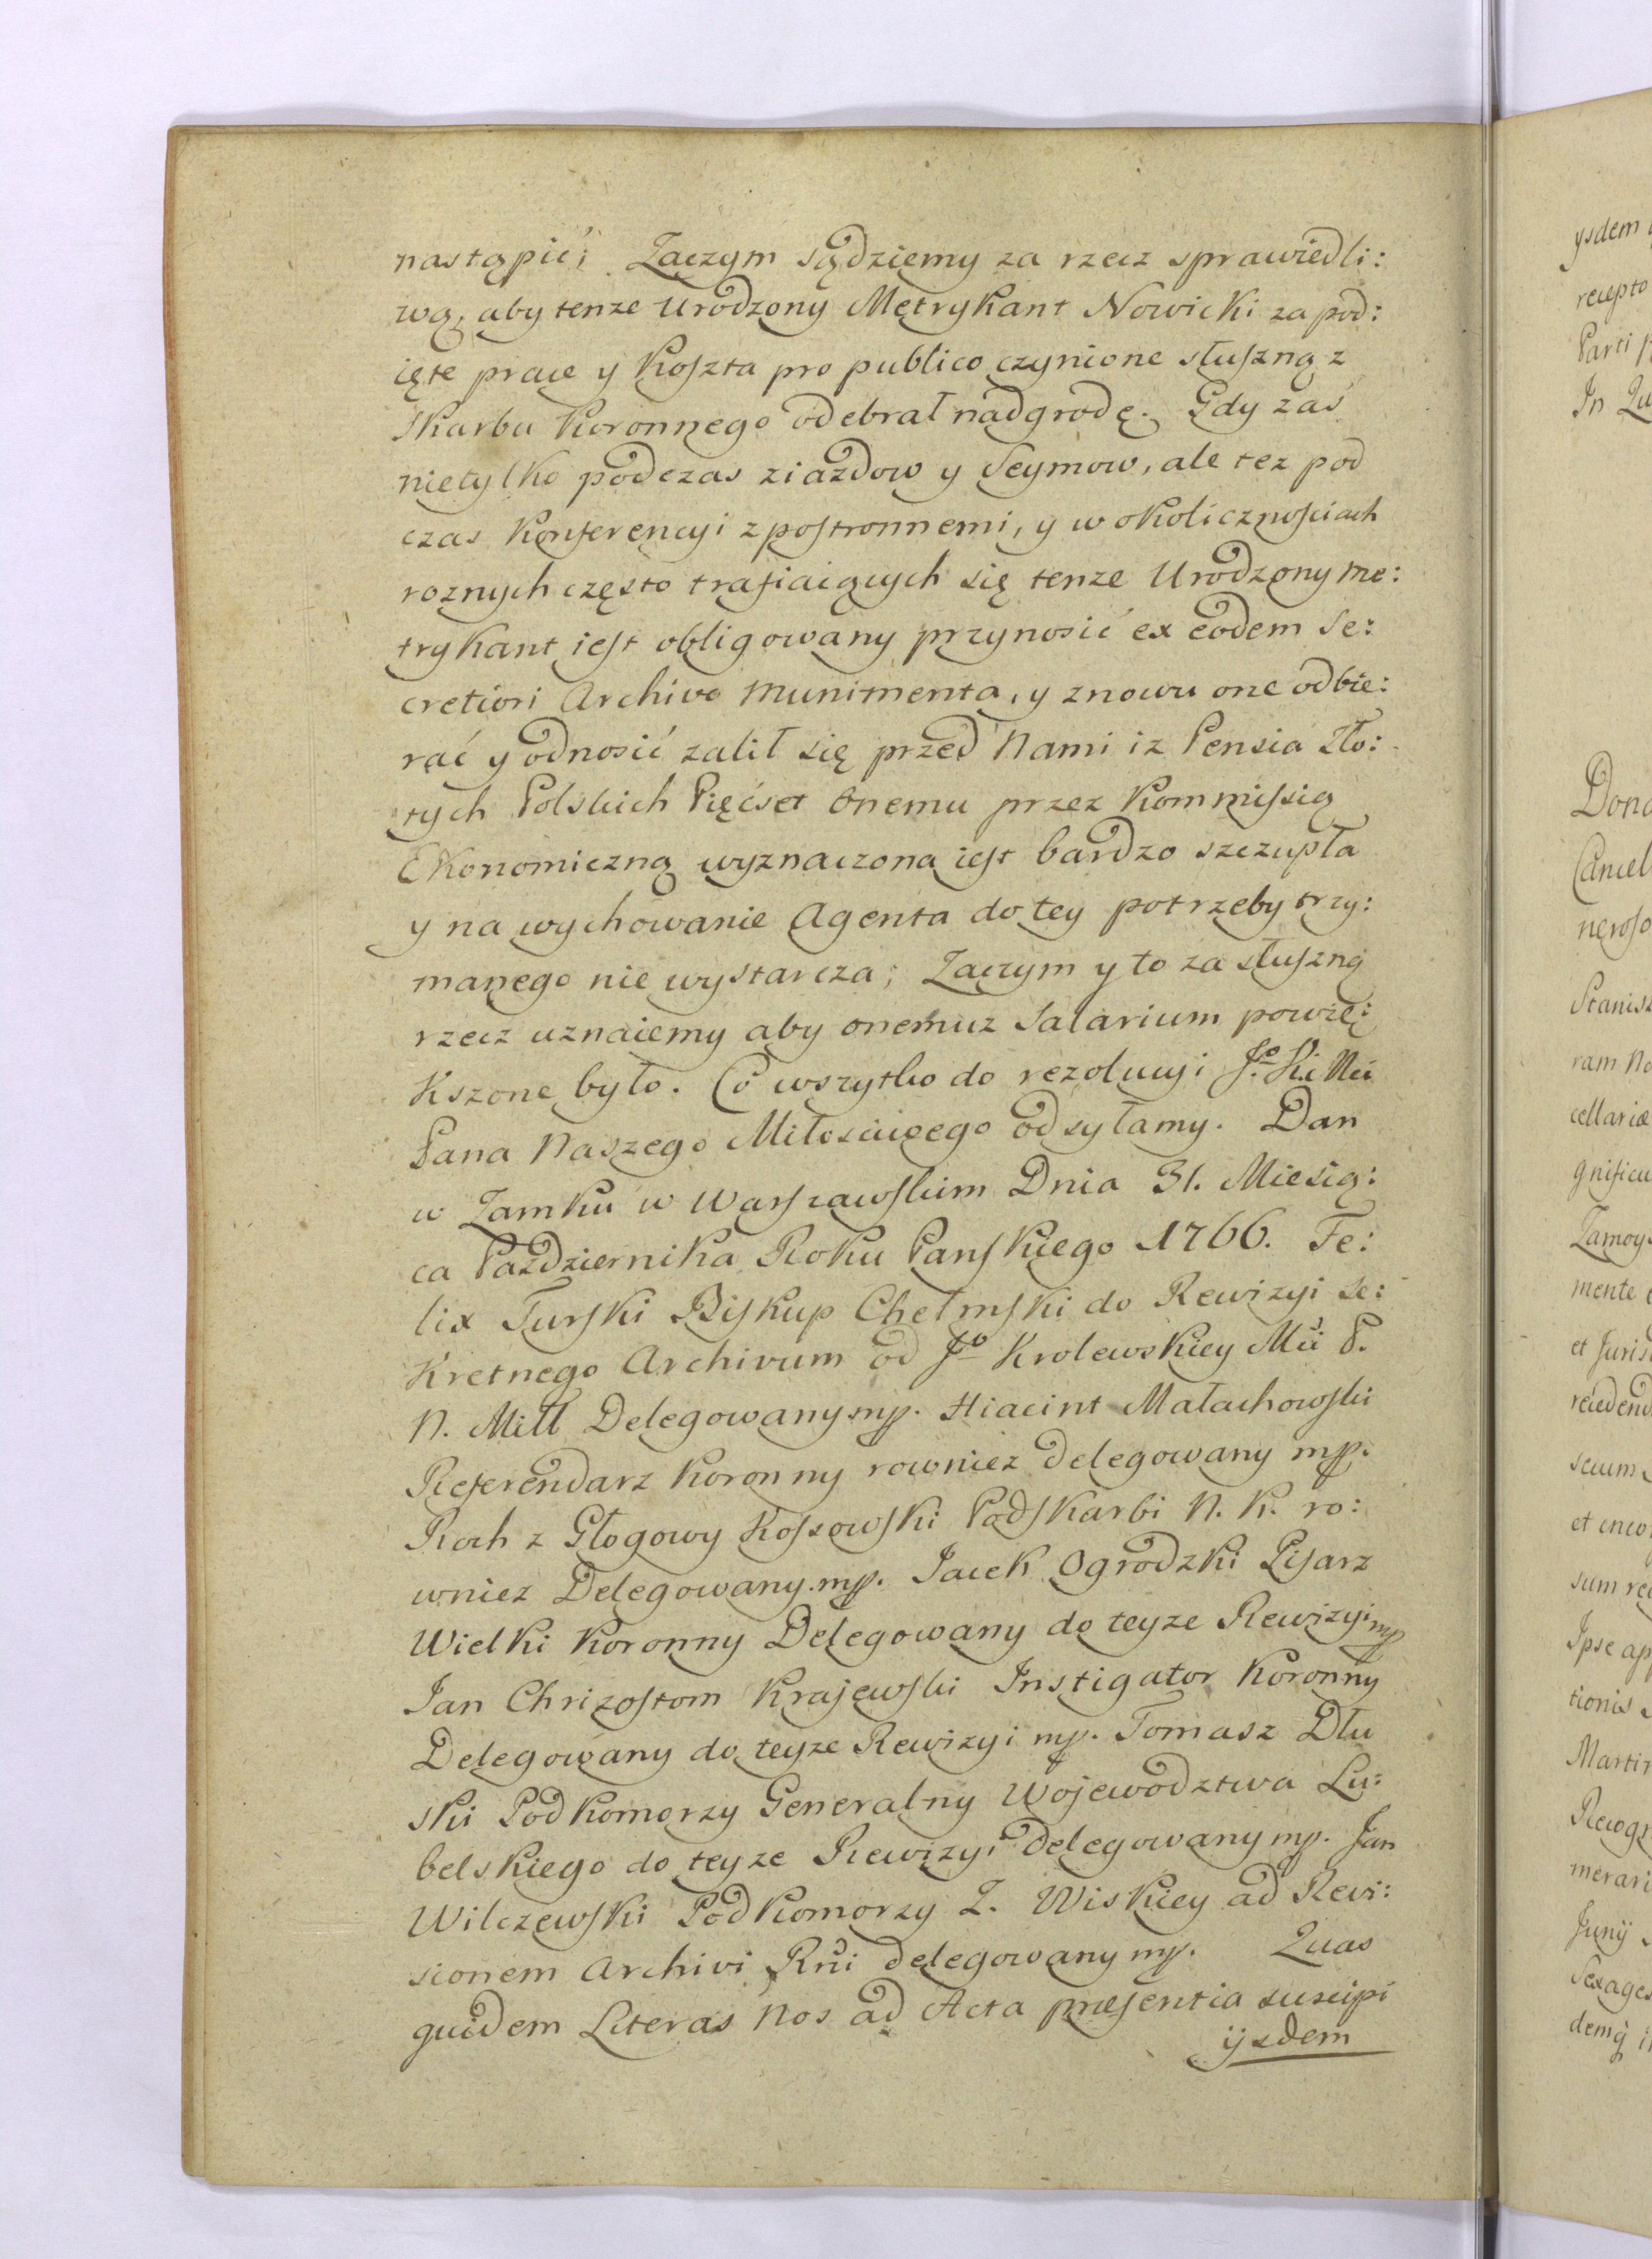 nastąpić; Zaczym sądziemy za rzecz sprawiedli:
wą, aby tenze Urodzony Metrykant Nowicki za pod:
ięte prace y Koszta pro publico czynione słuszną z
Skarbu Koronnego odebrał nadgrodę. Gdy zaś
nietylko podczas ziazdow y Seymow, ale tez pod
czas Konferencyi z postronnemi, y w okolicznościach
roznych często trafiaiących się tenze Urodzony Me:
trykant iest obligowany przynosić ex eodem Se:
cretiori Archivo Munimenta, y znowu one odbie:
rać y odnosić zalił się przed Nami iz Pensia Zło:
tych Polskich Pięćset Onemu przez Kommissią
Ekonomiczną wyznaczona iest bardzo szczupła
y na wychowanie Agenta do tey potrzeby trzy:
manego nie wystarcza; Zaczym y to za słuszną
rzecz uznaiemy aby onemuz Salarium powię:
kszone było. Co wszytko do rezolucyi Jo. K. Mci
Pana Naszego Miłosciwego odsyłamy. Dan
w Zamku w Warszawskim Dnia 31. Miesią:
ca Pazdziernika Roku Panskiego 1766. Fe:
lix Turski Biskup Chełmski do Rewizyi Se:
kretnego Archivum od Jo Krolewskiey Mci P.
N. Mill Delegowany mp. Hiacint Małachowski
Referendarz Koronny rowniez delegowany mp.
Roch z Głogowy Kossowski Podskarbi N. K. ro:
wniez Delegowany mp. Jacek Ogrodzki Pisarz
Wielki Koronny Delegowany do teyze Rewizyi mp
Jan Chrizostom Krajewski Instigator Koronny
Delegowany do teyze Rewizyi mp. Tomasz Dłu
ski Podkomorzy Generalny Wojewodztwa Lu:
belskiego do teyze Rewizyi delegowany mp. Jan
Wilczewski Podkomorzy Z. Wiskiey ad Revi:
sionem Archivi Rni delegowany mp. Quas
quidem Literas Nos ad Acta præsentia suscipi
ijsdem
ysdem
recepto
Parti
In
Cancel
neroso
Stanis
ram No
cellariæ
gnificu
Zamoy
mente
et Juris
recedend
sum re
Ipse ap
tionis
Martin
Recogn
merari
Junij
Sexages